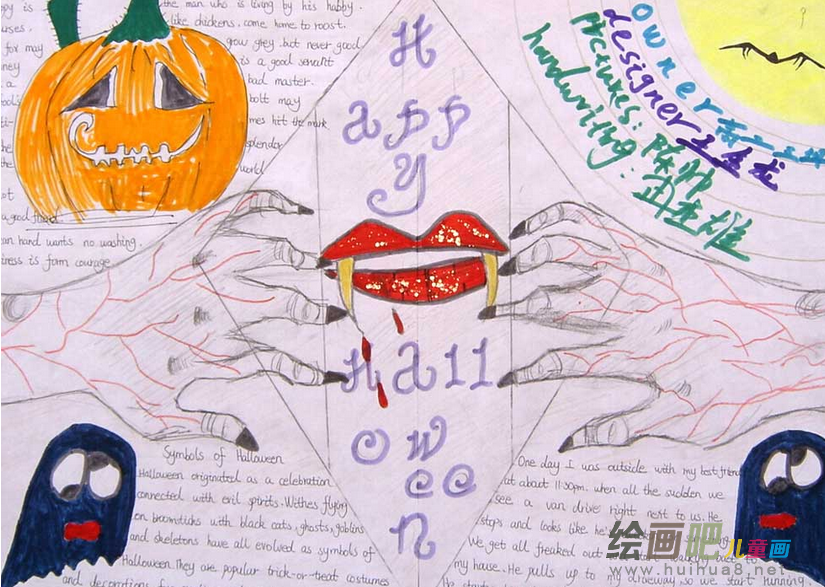 the man who is living by his hobby.
like chickens, come home to roost.
for may
grow grey but never good
is a good servant
bad master.
bolt may
the mark
splendor
world
a good
hand wants no washing.
is form courage.
H
app
y
Hall
ow
ee
n
owner:
designer:
pictures:
handwriting:
Symbols of Halloween
Halloween originated as a celebration
connected with evil spirits. Withes flying
on broomsticks with black cats, ghosts, goblins
and skeletons have all evolved as symbols of
Halloween. They are popular trick-or-treat costumes
and decorations for
One day I was outside with my best friend
at about 11:30pm. when all the sudden we
see a van drive right next to us. He
stops and looks like he's
We get all freaked out
my house. He pulls up to my driveway so we start running.
绘画吧儿童画
www.huihua8.net